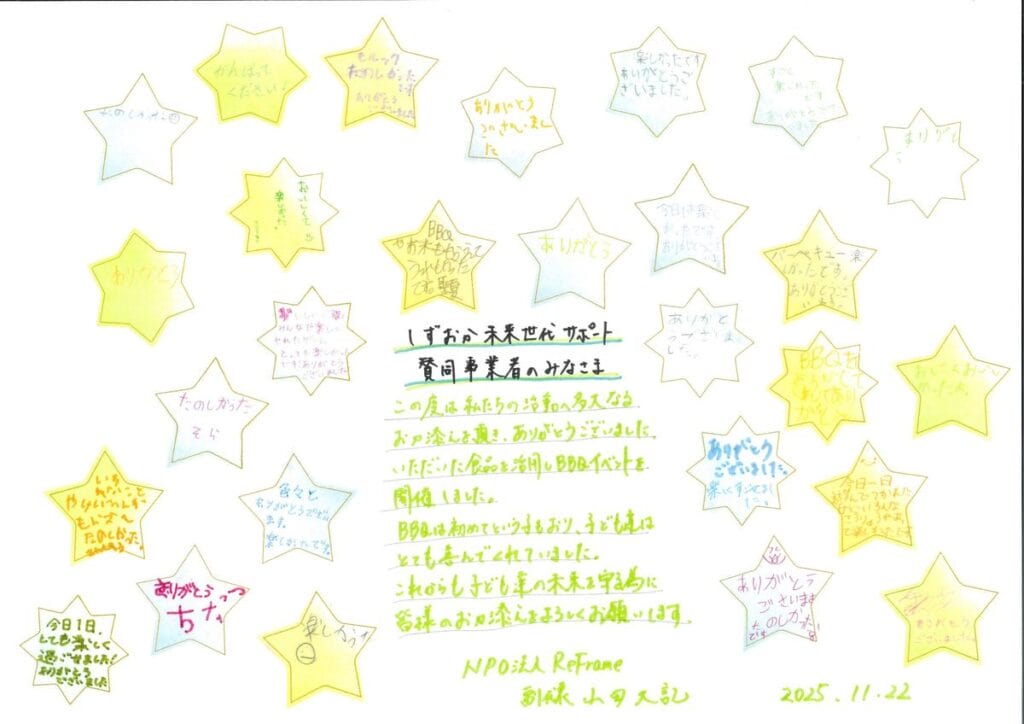 がんばって
ください!
モルック
たのしかった
です
ありがとう
ございました
たのしかった
ありがとう
ございまし
た
楽しかったです
ありがとうご
ざいました。
すごく
楽しかった
です
ありがとうござ
ありがと
おいしくて
楽しかった。
BBQ
やお木ももらえて
うれしかった
です
ありがとう
今日は楽し
かったです
ありがとうござ
バーベキュー楽
しかったです。
ありがとうござ
いました
ありがとう
みんなで楽しく
やれたゲーム
とっても楽しかった
です。ありがとう
ございました
ありがと
うございま
した。
しずおか未来世代サポート
賛同事業者のみなさま
この度は私たちの活動へ多大なる
お力添えを頂き、ありがとうございました。
いただいた食品を活用しBBQイベントを
開催しました。
BBQは初めてという子もおり、子ども達は
とても喜んでくれていました。
これからも子ども達の未来を守る為に
皆様のお力添えをよろしくお願いします。
NPO法人 ReFrame
2025.11.22
BBQを
たのしかった
そら
ありがとう
ございました。
今日一日
いろ
たのしかった
色々と
ありがとうござい
ます。
楽しかったです。
ありがとうっっ
ありがとう
ございます
たのしかった
です
ありがとう
ございました
今日1日、
とても楽しく
過ごせました!
ありがとう
ございました
楽しかった